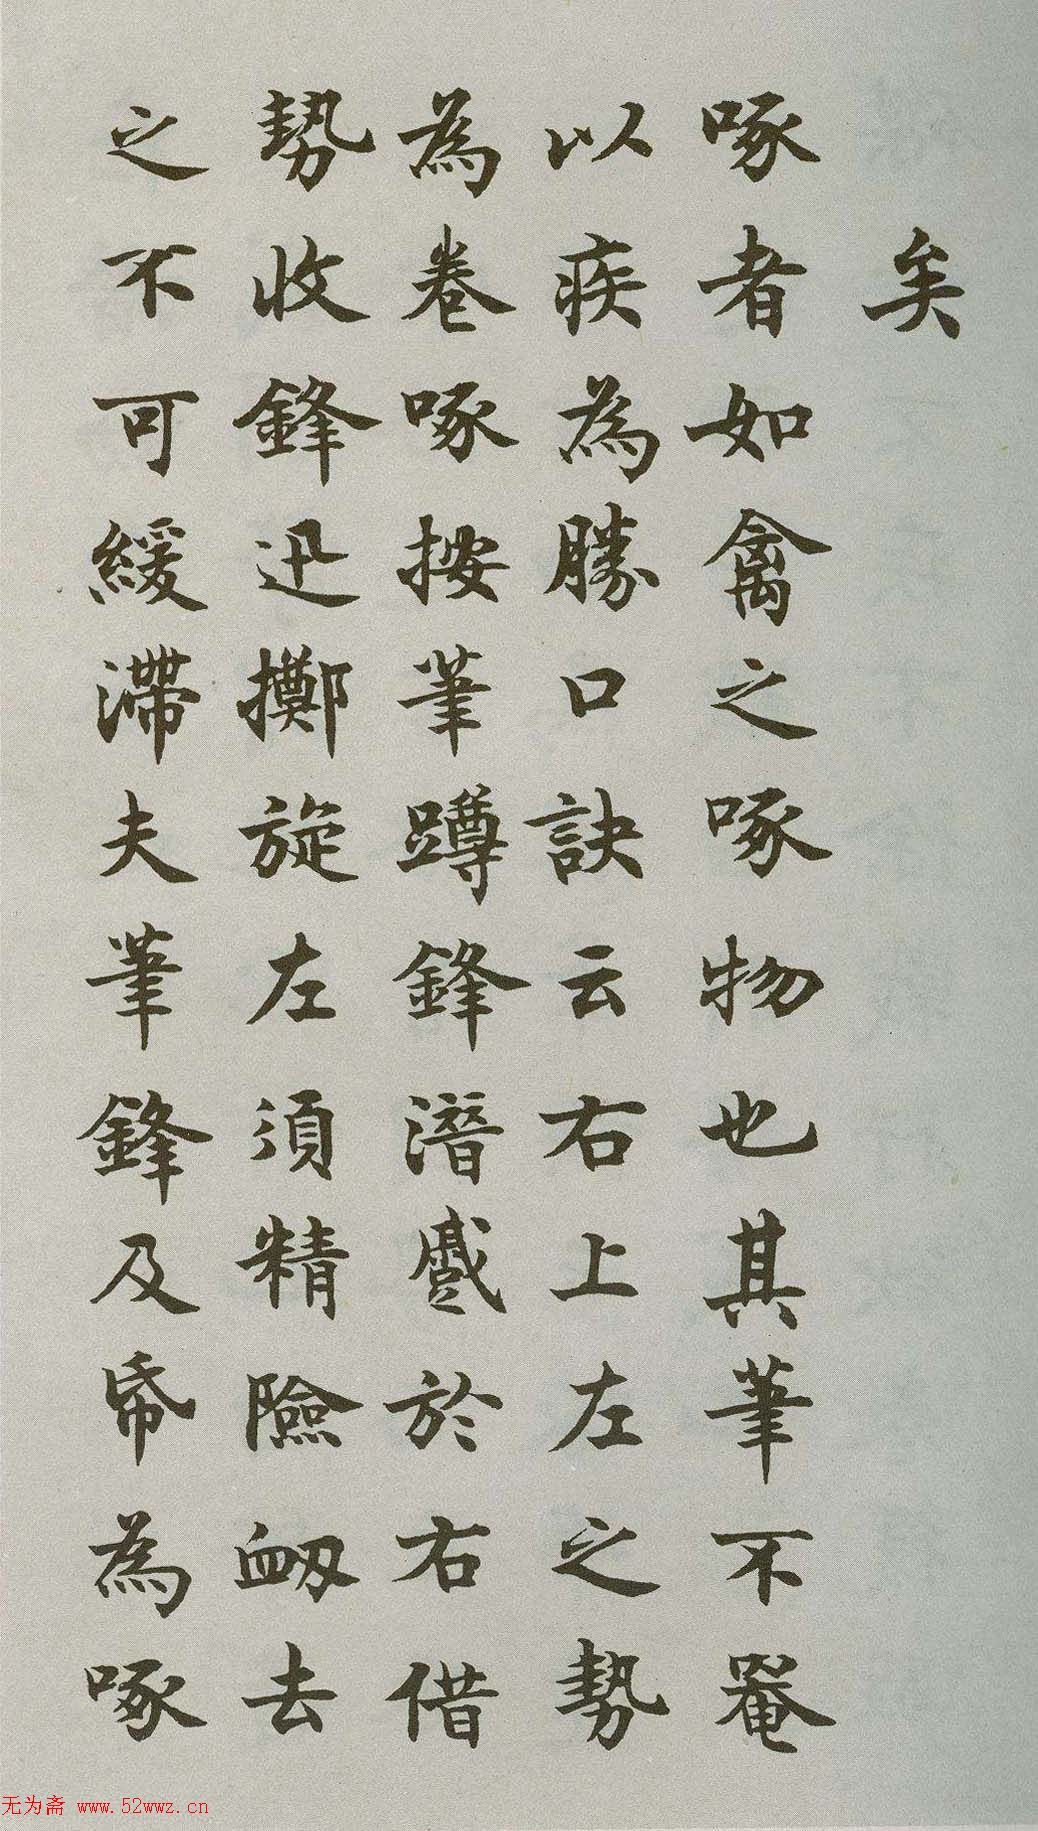 矣
啄者如禽之啄物也其筆不罨
以疾為勝口訣云右上左之勢
為卷啄按筆蹲鋒潛蹙於右借
勢收鋒迅擲旋左須精險衂去
之不可緩滯夫筆鋒及帋為啄
无为斋 www.52wwz.cn